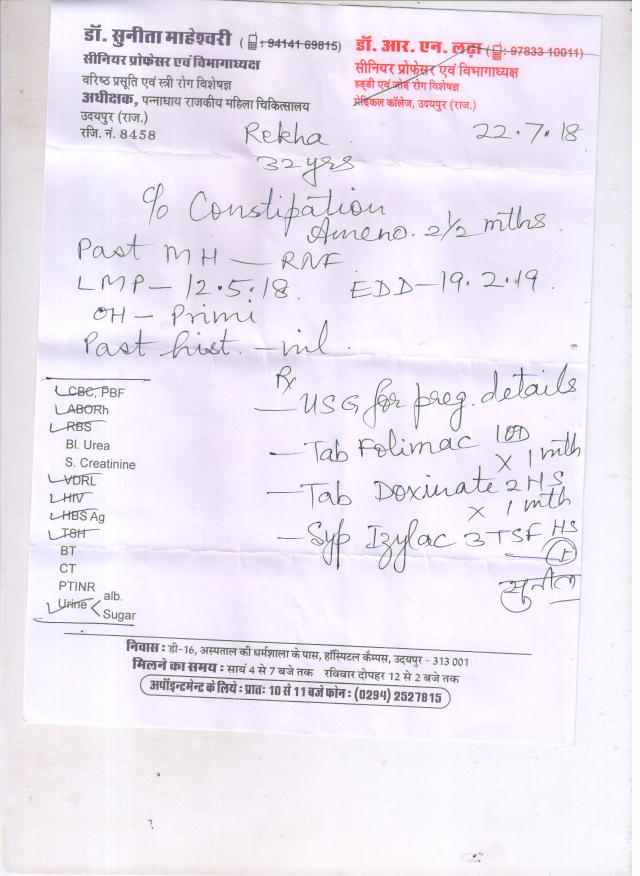 डॉ. सुनीता माहेश्वरी (: 94141 69815)
सीनियर प्रोफेसर एवं विभागाध्यक्ष
वरिष्ठ प्रसूति एवं स्त्री रोग विशेषज्ञ
अधीक्षक, पन्नाधाय राजकीय महिला चिकित्सालय
उदयपुर (राज.)
रजि. नं. 8458
डॉ. आर. एन. लढ़ा (: 97833 10011)
सीनियर प्रोफेसर एवं विभागाध्यक्ष
हड्डी एवं जोड़ रोग विशेषज्ञ
मेडिकल कॉलेज, उदयपुर (राज.)
Rekha 22.7.18
32 yrs
c/o Constipation
Ameno. 2½ mths.
Past MH — RNF
LMP — 12.5.18. EDD — 19.2.19.
OH — Primi
Past hist. — nil
Rx
— USG for preg. details
— Tab Folimac 1OD
x 1 mth
— Tab Doxinate 2 HS
x 1 mth
— Syp Izylac 3 TSF HS
CBC, PBF
ABORh
RBS
Bl. Urea
S. Creatinine
VDRL
HIV
HBS Ag
TSH
BT
CT
PTINR
Urine < alb.
Sugar
निवास : डी-16, अस्पताल की धर्मशाला के पास, हॉस्पिटल कैम्पस, उदयपुर - 313 001
मिलने का समय : सायं 4 से 7 बजे तक रविवार दोपहर 12 से 2 बजे तक
अपॉइन्टमेन्ट के लिये : प्रातः 10 से 11 बजे फोन : (0294) 2527815